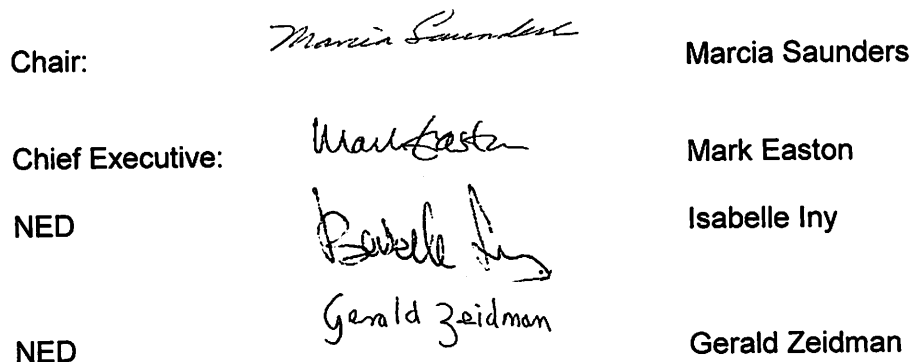 Chair: Marcia Saunders Marcia Saunders
Chief Executive: Mark Easton Mark Easton
NED Isabelle Iny Isabelle Iny
NED Gerald Zeidman Gerald Zeidman